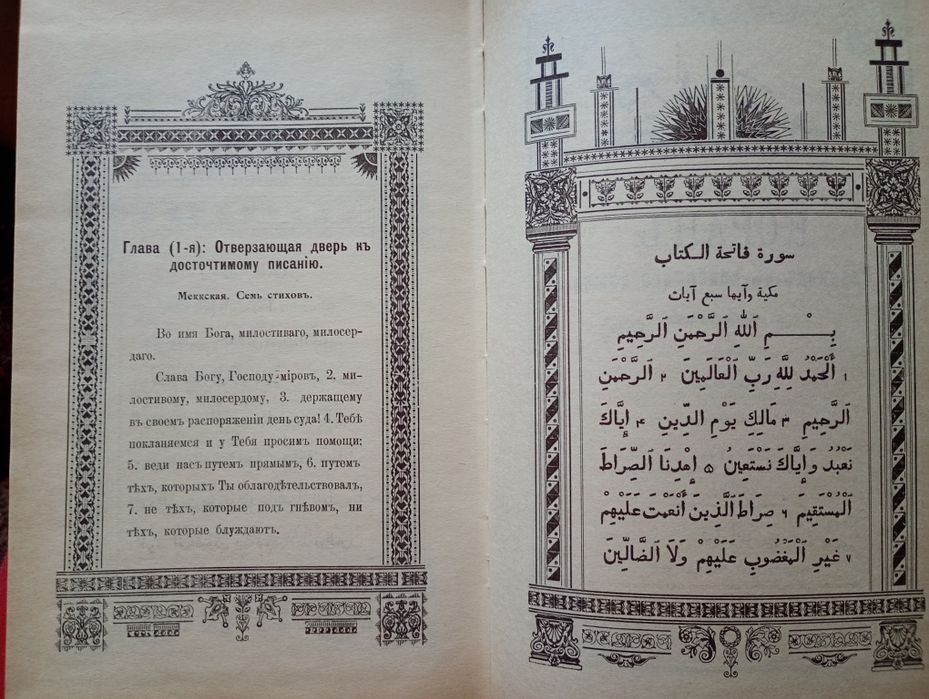 Глава (1-я): Отверзающая дверь къ
досточтимому писанію.
Меккская. Семь стиховъ.
Во имя Бога, милостиваго, милосер-
даго.
Слава Богу, Господу міровъ, 2. ми-
лостивому, милосердому, 3. держащему
въ своемъ распоряженіи день суда! 4. Тебѣ
покланяемся и у Тебя просимъ помощи:
5. веди насъ путемъ прямымъ, 6. путемъ
тѣхъ, которыхъ Ты облагодѣтельствовалъ,
7. не тѣхъ, которые подъ гнѣвомъ, ни
тѣхъ, которые блуждаютъ.
سورة فاتحة الكتاب
مكية وآيها سبع آيات
بِسْمِ اَللّٰهِ اَلرَّحْمَنِ اَلرَّحِيمِ
١ اَلْحَمْدُ لِلَّهِ رَبِّ اَلْعَالَمِينَ ٢ اَلرَّحْمَنِ
اَلرَّحِيمِ ٣ مَالِكِ يَوْمِ اَلدِّينِ ٤ إِيَّاكَ
نَعْبُدُ وَإِيَّاكَ نَسْتَعِينُ ٥ اِهْدِنَا اَلصِّرَاطَ
اَلْمُسْتَقِيمَ ٦ صِرَاطَ اَلَّذِينَ أَنْعَمْتَ عَلَيْهِمْ
٧ غَيْرِ اَلْمَغْضُوبِ عَلَيْهِمْ وَلَا اَلضَّالِّينَ